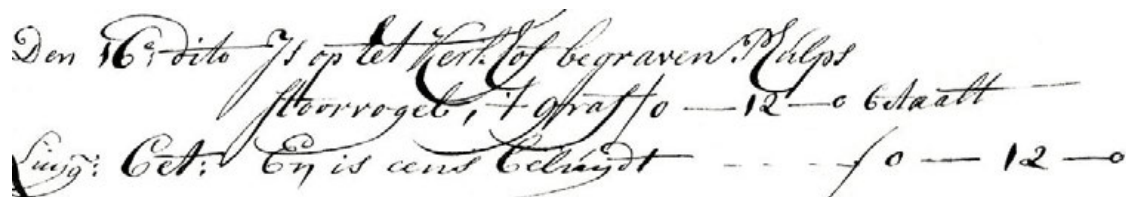 Den 16e: dito Is op het Kerk hof begraven Philps
Stoorvogel, 't graf f 0 — 12 — 0 betaalt
Luijg: Cet: En is eens beluijdt - - - - f 0 — 12 — 0